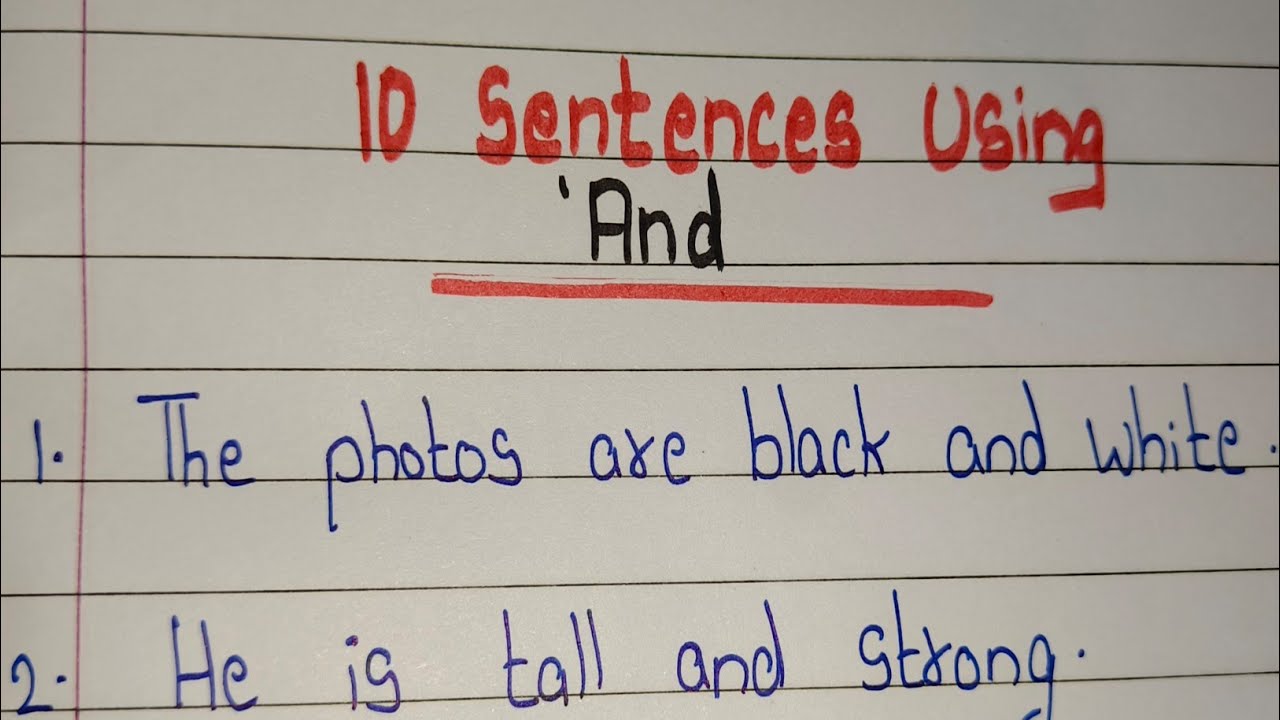 10 Sentences Using
'And
1. The photos are black and white.
2. He is tall and strong.